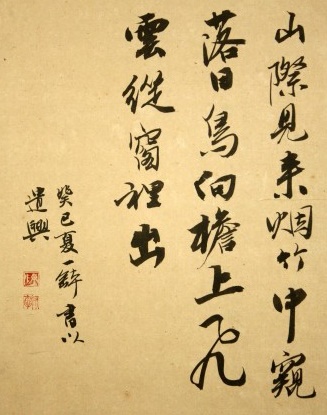 山際見来烟竹中窺
落日鳥向檐上飛
雲從窗裡出
癸巳夏一醉書以
遣興